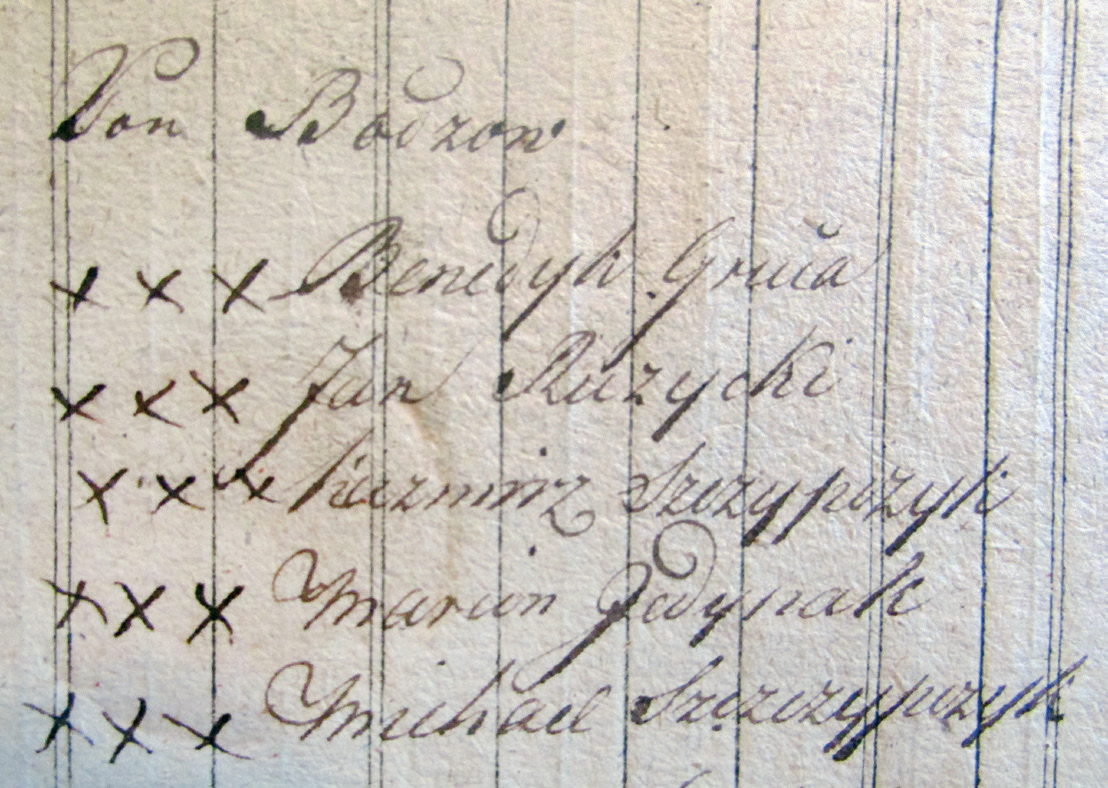 Von Bodzow
× × × Benedyk Gruča
× × × Jan Ruzycki
× × × Kazmirz Szczypczyk
× × × Marcin Jedynak
× × × Michael Szczczypczyk